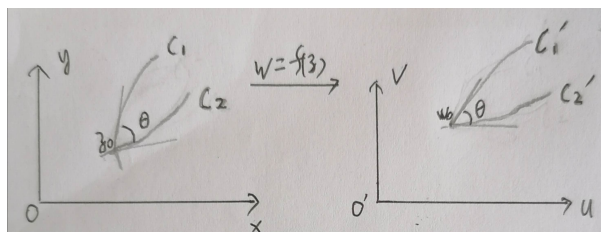 y
C₁
C₂
z₀
θ
O
x
W=f(z)
V
C₁′
C₂′
w₀
θ
O′
u